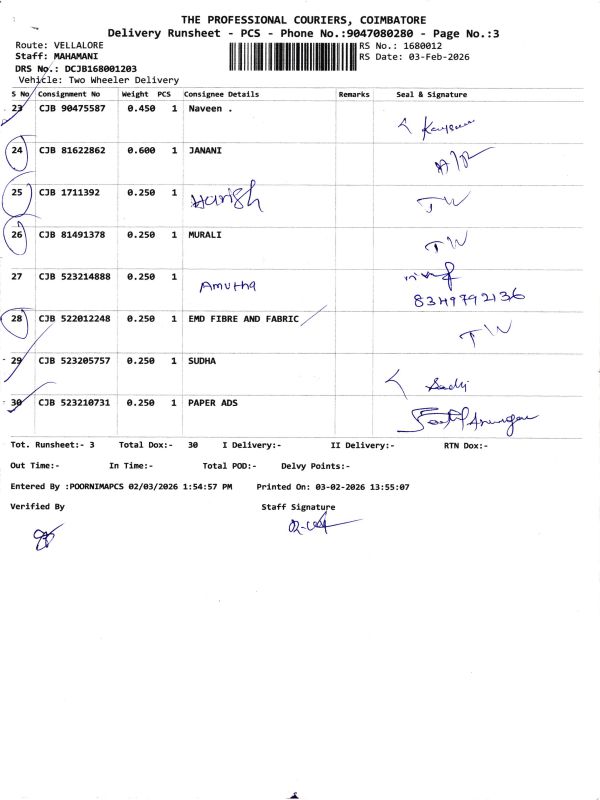 THE PROFESSIONAL COURIERS, COIMBATORE
Delivery Runsheet - PCS - Phone No.:9047080280 - Page No.:3
Route: VELLALORE RS No.: 1680012
Staff: MAHAMANI RS Date: 03-Feb-2026
DRS No.: DCJB168001203
Vehicle: Two Wheeler Delivery
S No Consignment No Weight PCS Consignee Details Remarks Seal & Signature
23 CJB 90475587 0.450 1 Naveen .
24 CJB 81622862 0.600 1 JANANI
25 CJB 1711392 0.250 1 Harish TW
26 CJB 81491378 0.250 1 MURALI TW
27 CJB 523214888 0.250 1 Amutha
8349792136
28 CJB 522012248 0.250 1 EMD FIBRE AND FABRIC TW
29 CJB 523205757 0.250 1 SUDHA
30 CJB 523210731 0.250 1 PAPER ADS
Tot. Runsheet:- 3 Total Dox:- 30 I Delivery:- II Delivery:- RTN Dox:-
Out Time:- In Time:- Total POD:- Delvy Points:-
Entered By :POORNIMAPCS 02/03/2026 1:54:57 PM Printed On: 03-02-2026 13:55:07
Verified By Staff Signature